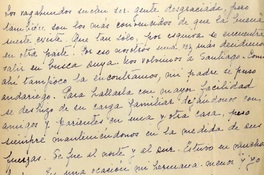 Los vagabundos suelen ser gente desgraciada, pero
también son los más convencidos de que la buena
suerte existe. Que tan solo, por esquiva se encuentra
en otra parte. Por eso nosotros una vez más decidimos
salir en busca suya. Nos volvimos a Santiago. Como
ahí tampoco la encontramos, mi padre se puso
andariego. Para hallarla con mayor facilidad
se deshizo de su carga familiar dejándonos con
amigos y parientes en una y otra casa, pero
siempre manteniéndonos en la medida de sus
fuerzas. Se fue al norte y al sur. Estuvo en muchas
En una ocasión mi hermana menor y yo